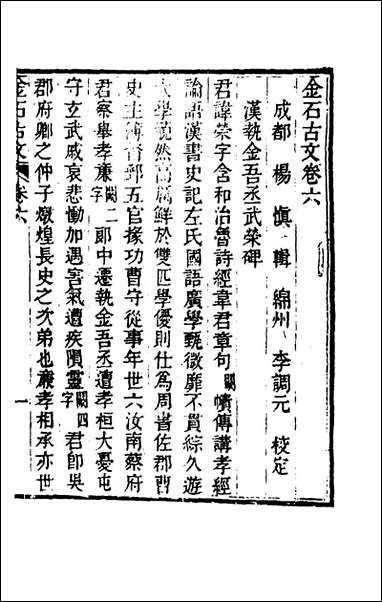 金石古文卷六
成都 楊慎 輯 綿州 李調元 校定
漢執金吾丞武榮碑
君諱榮字含和治魯詩經韋君章句闕幘傳講孝經
論語漢書史記左氏國語廣學甄微靡不貫綜久遊
大學藐然高厲鮮於雙匹學優則仕爲周書佐郡曹
史主簿督郵五官掾功曹守從事年世六汝南蔡府
君察舉孝廉闕二字郞中遷執金吾丞遭孝桓大憂屯
守玄武戚哀悲慟加遇害氣遭疾隕靈闕四字君卽吳
郡府卿之仲子燉煌長史之次弟也廉孝相承亦世
金石古文 卷六 一